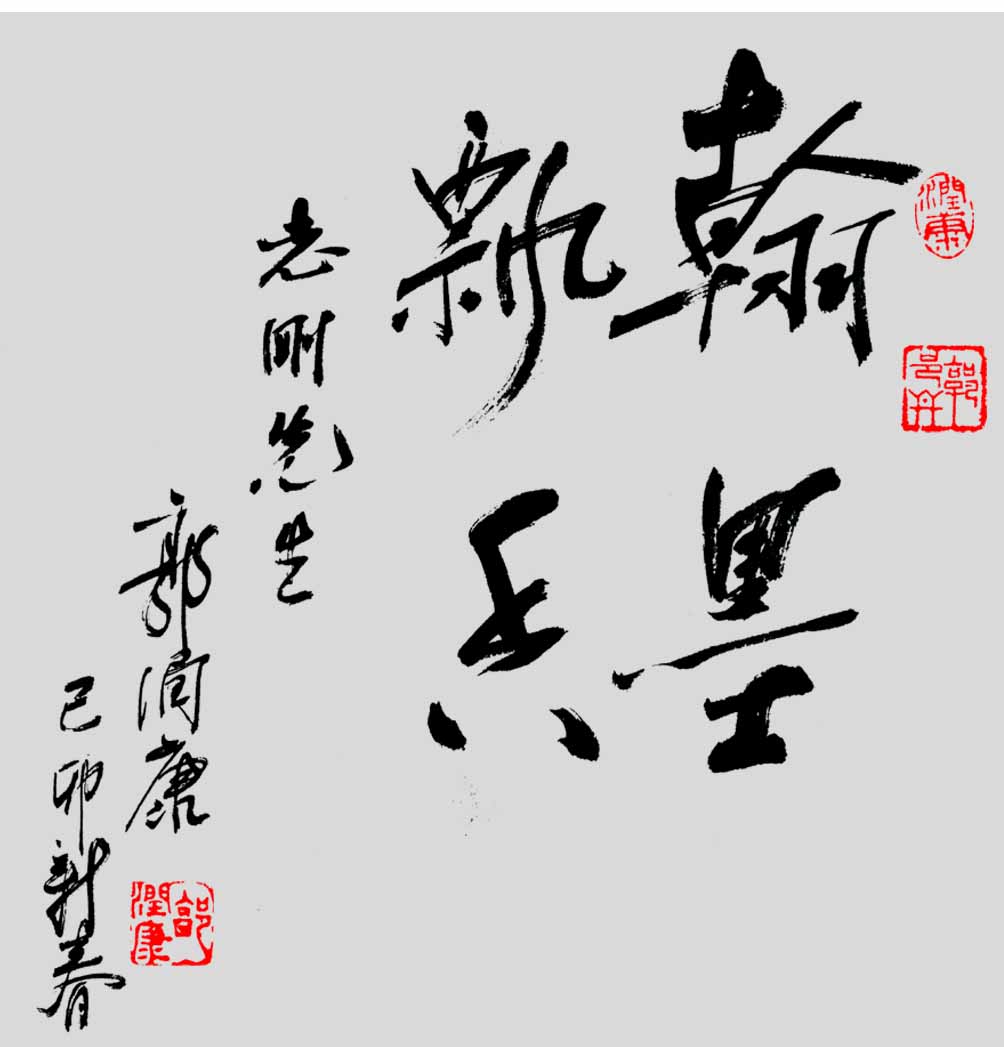 潤康
翰墨
飘香
志刚先生
郭润康
己卯新春
郭潤康